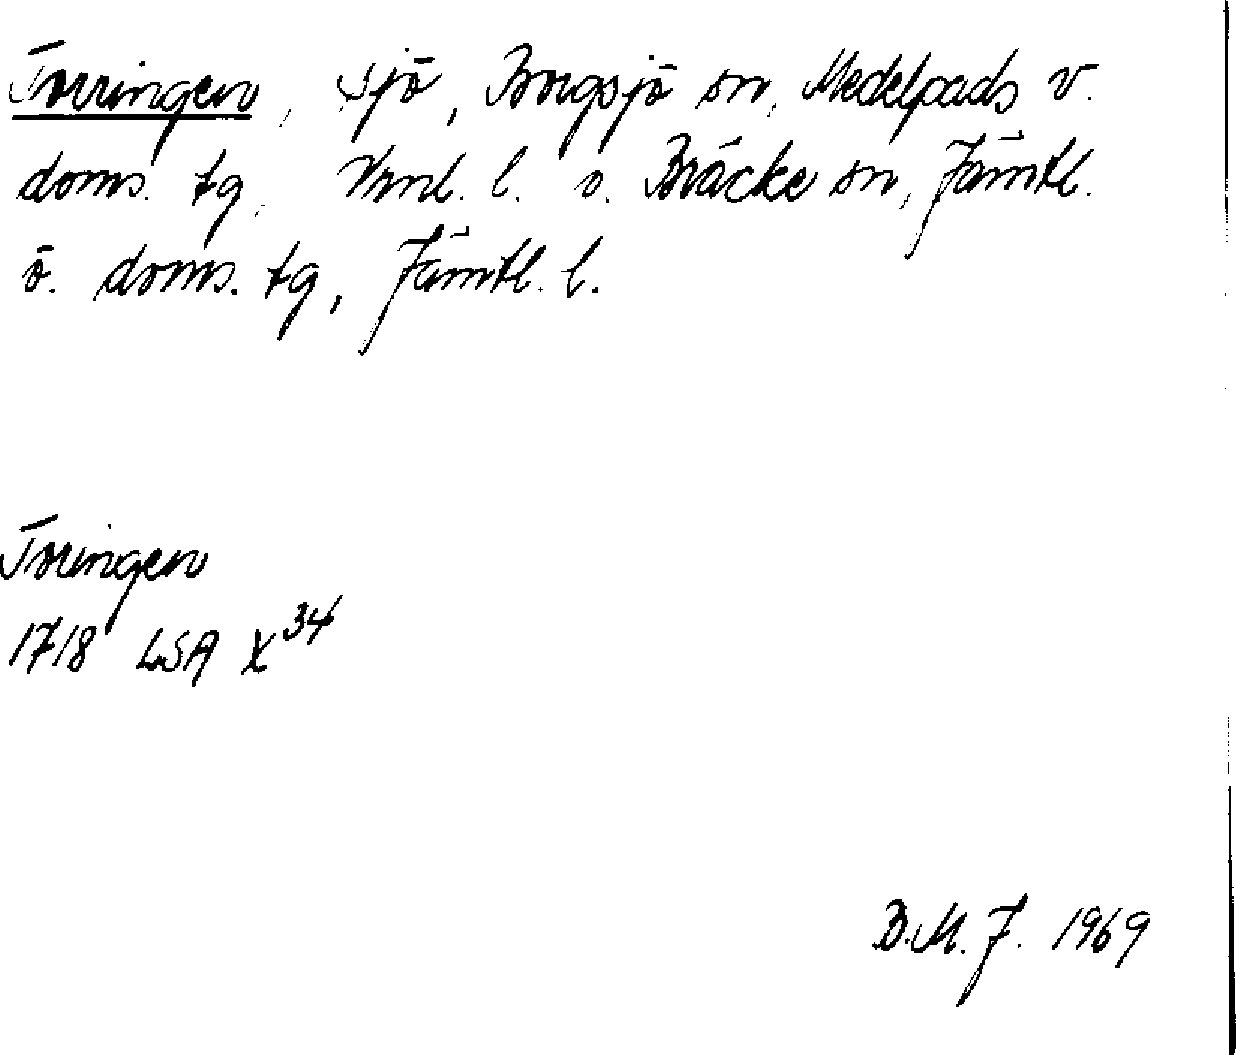 Torringen, sjö, Borgsjö sn, Medelpads v.
doms. tg, Vrnl. l. o. Bräcke sn, Jämtl.
ö. doms. tg, Jämtl. l.
Toringen
1718 LSA X³⁴
B.M.J. 1969